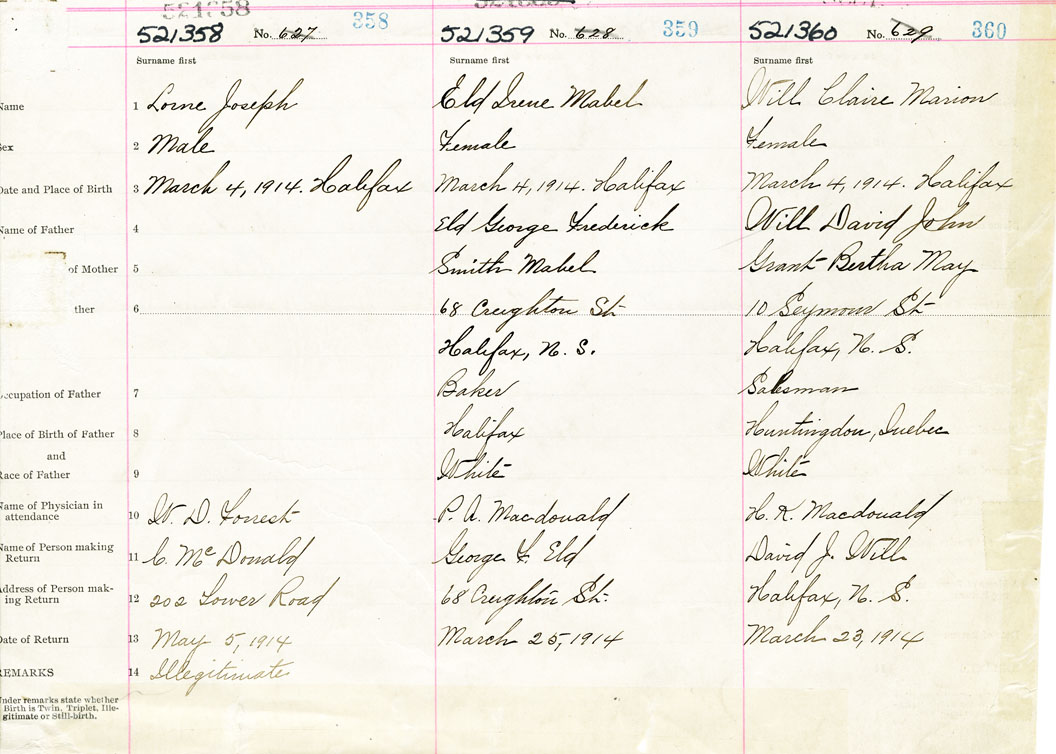 521358 No. 627 358 521359 No. 628 359 521360 No. 629 360
Surname first Surname first Surname first
Name 1 Lorne Joseph Eld Irene Mabel Will Claire Marion
Sex 2 Male Female Female
Date and Place of Birth 3 March 4, 1914. Halifax March 4, 1914. Halifax March 4, 1914. Halifax
Name of Father 4 Eld George Frederick Will David John
of Mother 5 Smith Mabel Grant Bertha May
ther 6 68 Creighton St. 10 Seymour St.
Halifax, N. S. Halifax, N. S.
Occupation of Father 7 Baker Salesman
Place of Birth of Father 8 Halifax Huntingdon, Quebec
and
Race of Father 9 White White
Name of Physician in
attendance 10 W. D. Forrest P. A. Macdonald H. K. Macdonald
Name of Person making
Return 11 C. McDonald George F. Eld David J. Will
Address of Person mak-
ing Return 12 202 Lower Road 68 Creighton St. Halifax, N. S.
Date of Return 13 May 5, 1914 March 25, 1914 March 23, 1914
REMARKS 14 Illegitimate
Under remarks state whether
Birth is Twin, Triplet, Ille-
gitimate or Still-birth.